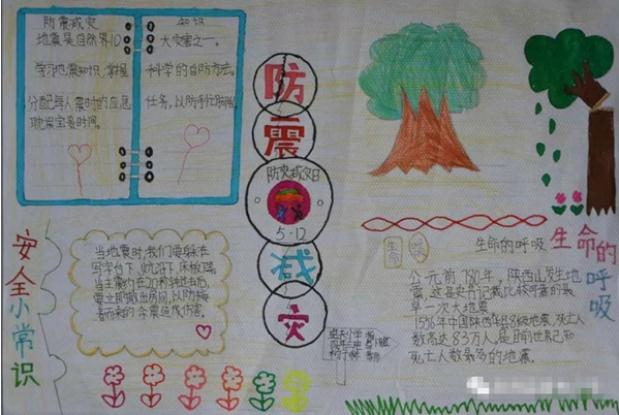 防震减灾 知识
地震是自然界10 大灾害之一。
学习地震知识,掌握 科学的自防方法。
分配每人震时的应急 任务,以防手忙脚乱
耽误宝贵时间。
防
震
防灾减灾日
5-12
减
灾
安全小常识
当地震时,我们要躲在
写字台下
当主震约在20秒钟过去后,
要立即撤出房间,以防接
着而来的余震造成伤害。
生命的呼吸
生命的呼吸
公元前780年,陕西山发生地
震,这是史书记载比较可靠的最
早一次大地震
1556年中国陕西华县8级地震,死亡人
数高达83万人,是目前世界已知
死亡人数最多的地震。